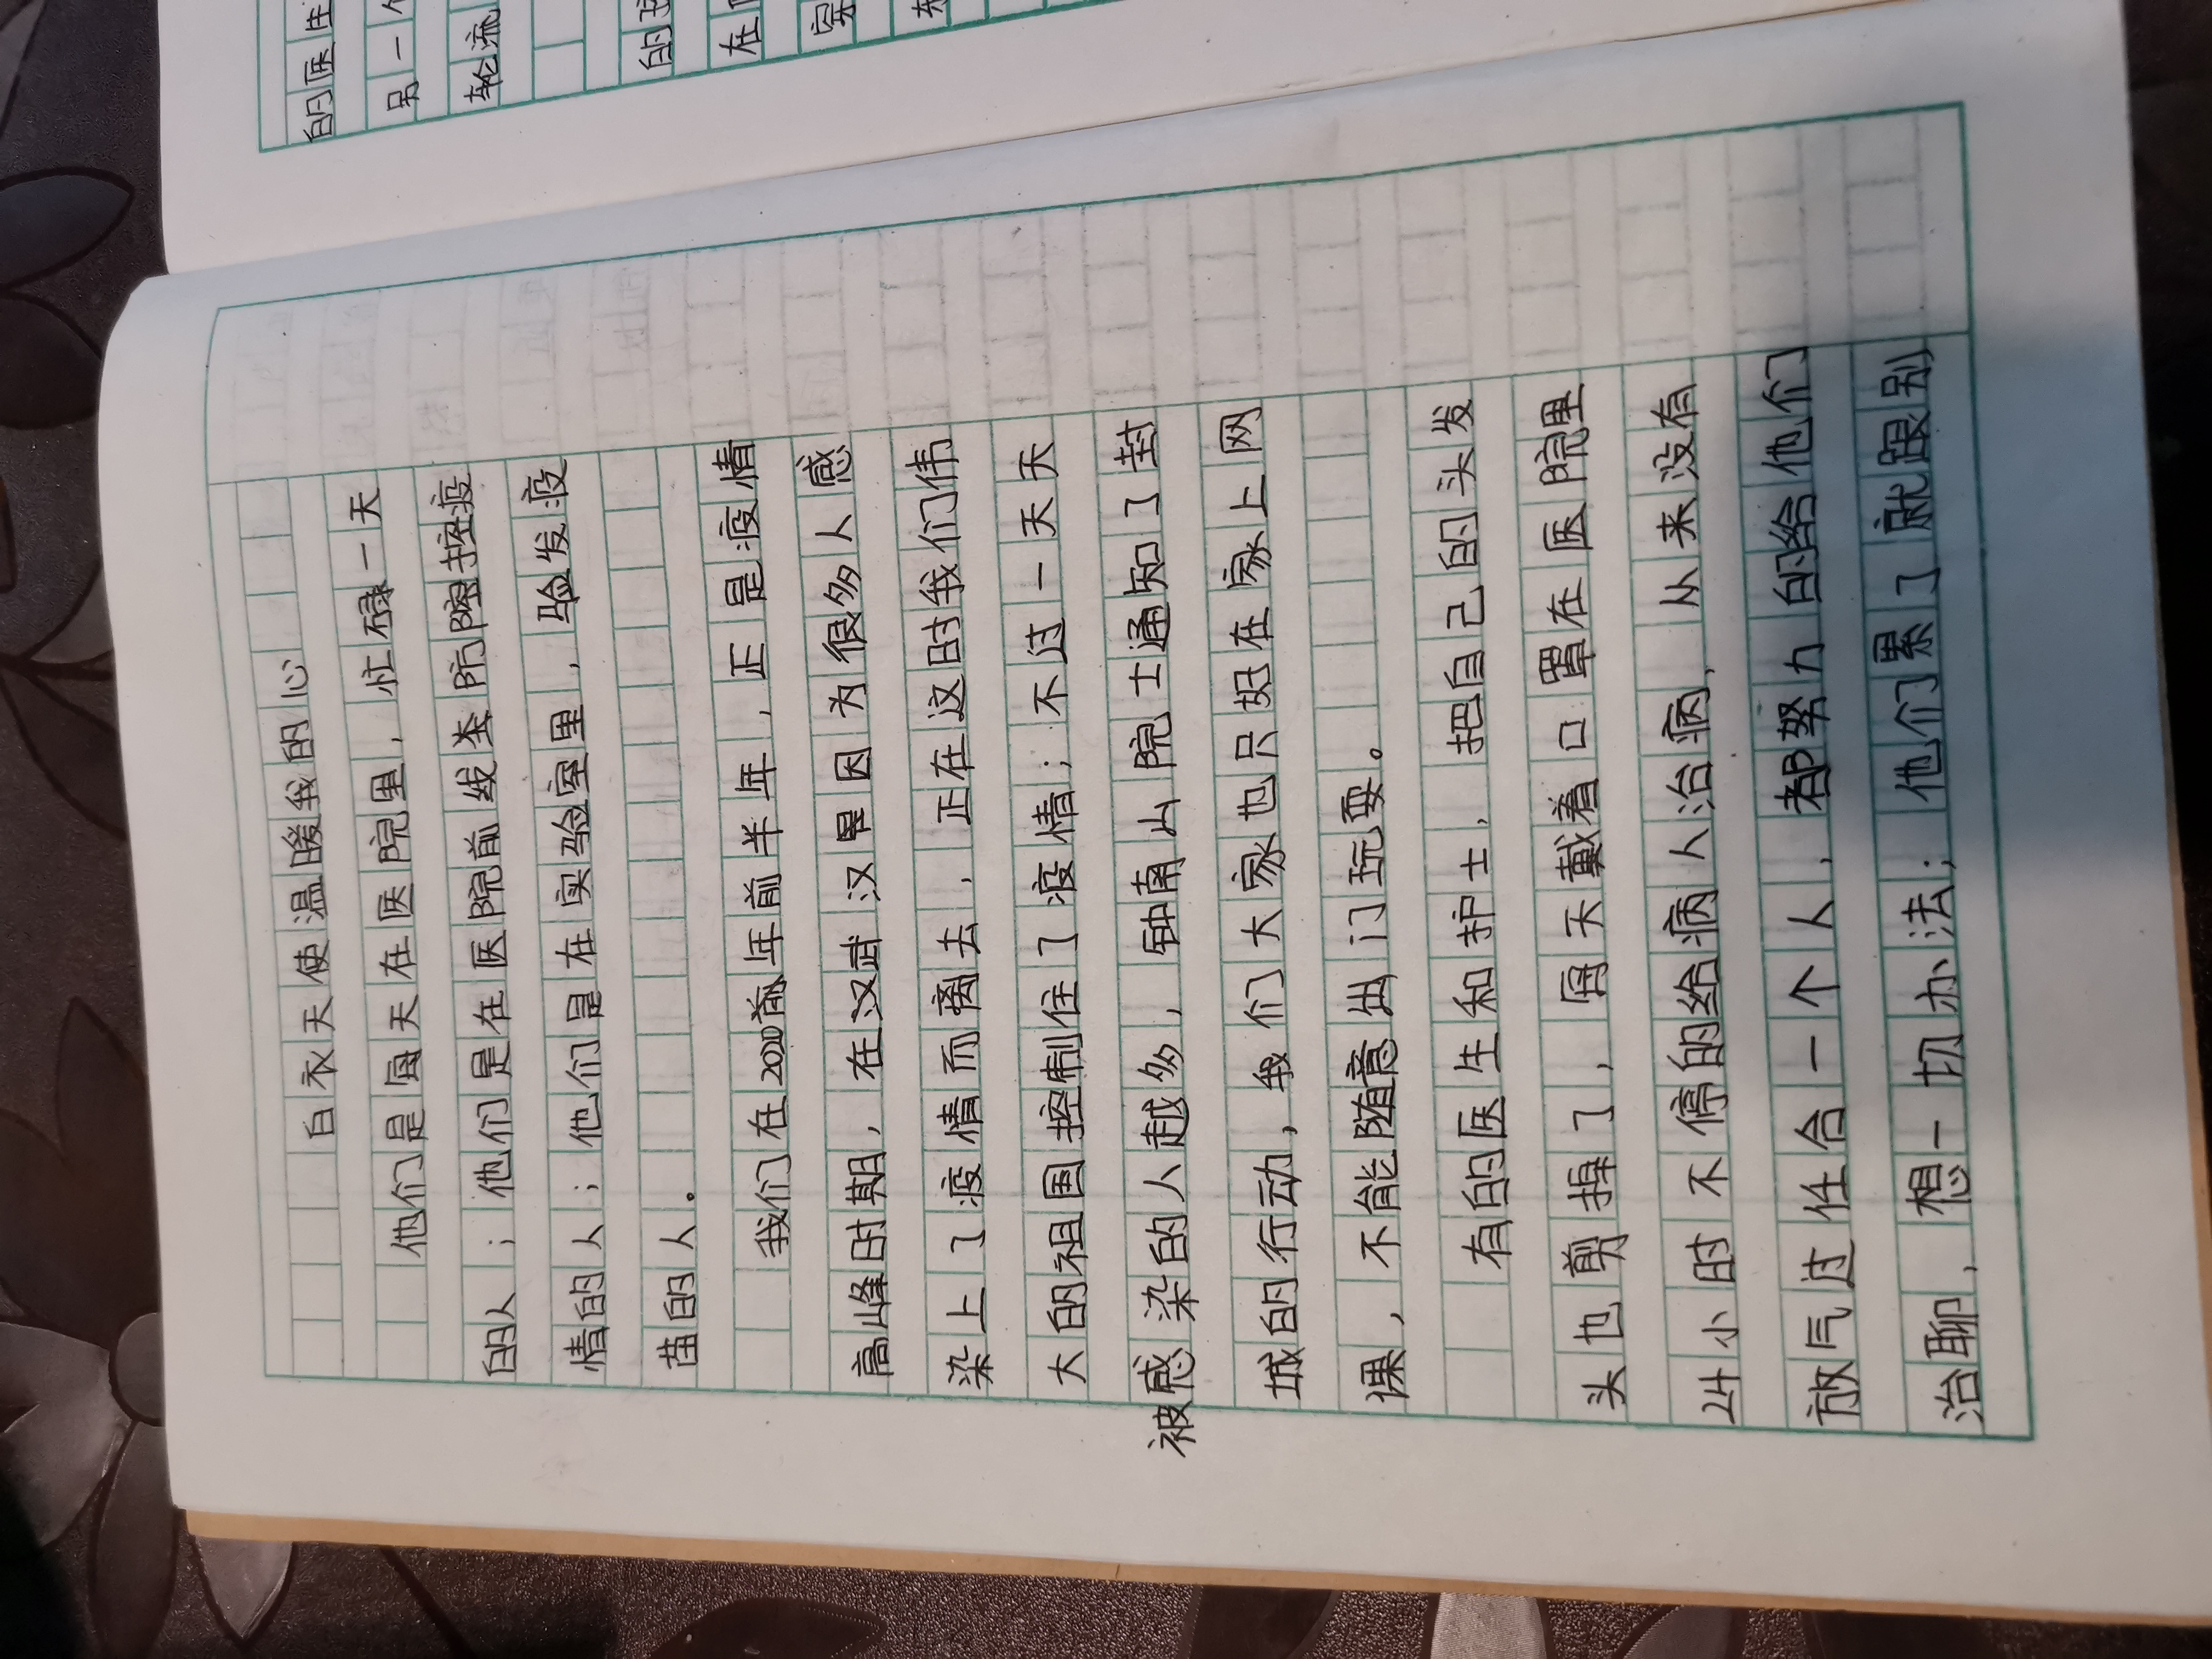 白衣天使温暖我的心
他们是每天在医院里,忙碌一天
的人;他们是在医院前线防控疫
情的人;他们是在实验室里,验发疫
苗的人。
我们在2020前年前半年,正是疫情
高峰时期,在汉武汉里因为很多人感
染上了疫情而离去,正在这时我们伟
大的祖国控制住了疫情;不过一天天
被感染的人越多,钟南山院士通知了封
城的行动,我们大家也只好在家上网
课,不能随意出门玩耍。
有的医生和护士,把自己的头发
头也剪掉了,每天戴着口罩在医院里
24小时不停的给病人治病,从来没有
放气过任合一个人,都努力的给他们
治聊,想一切办法;他们累了就跟别
的医生
另一
轮流
的
在